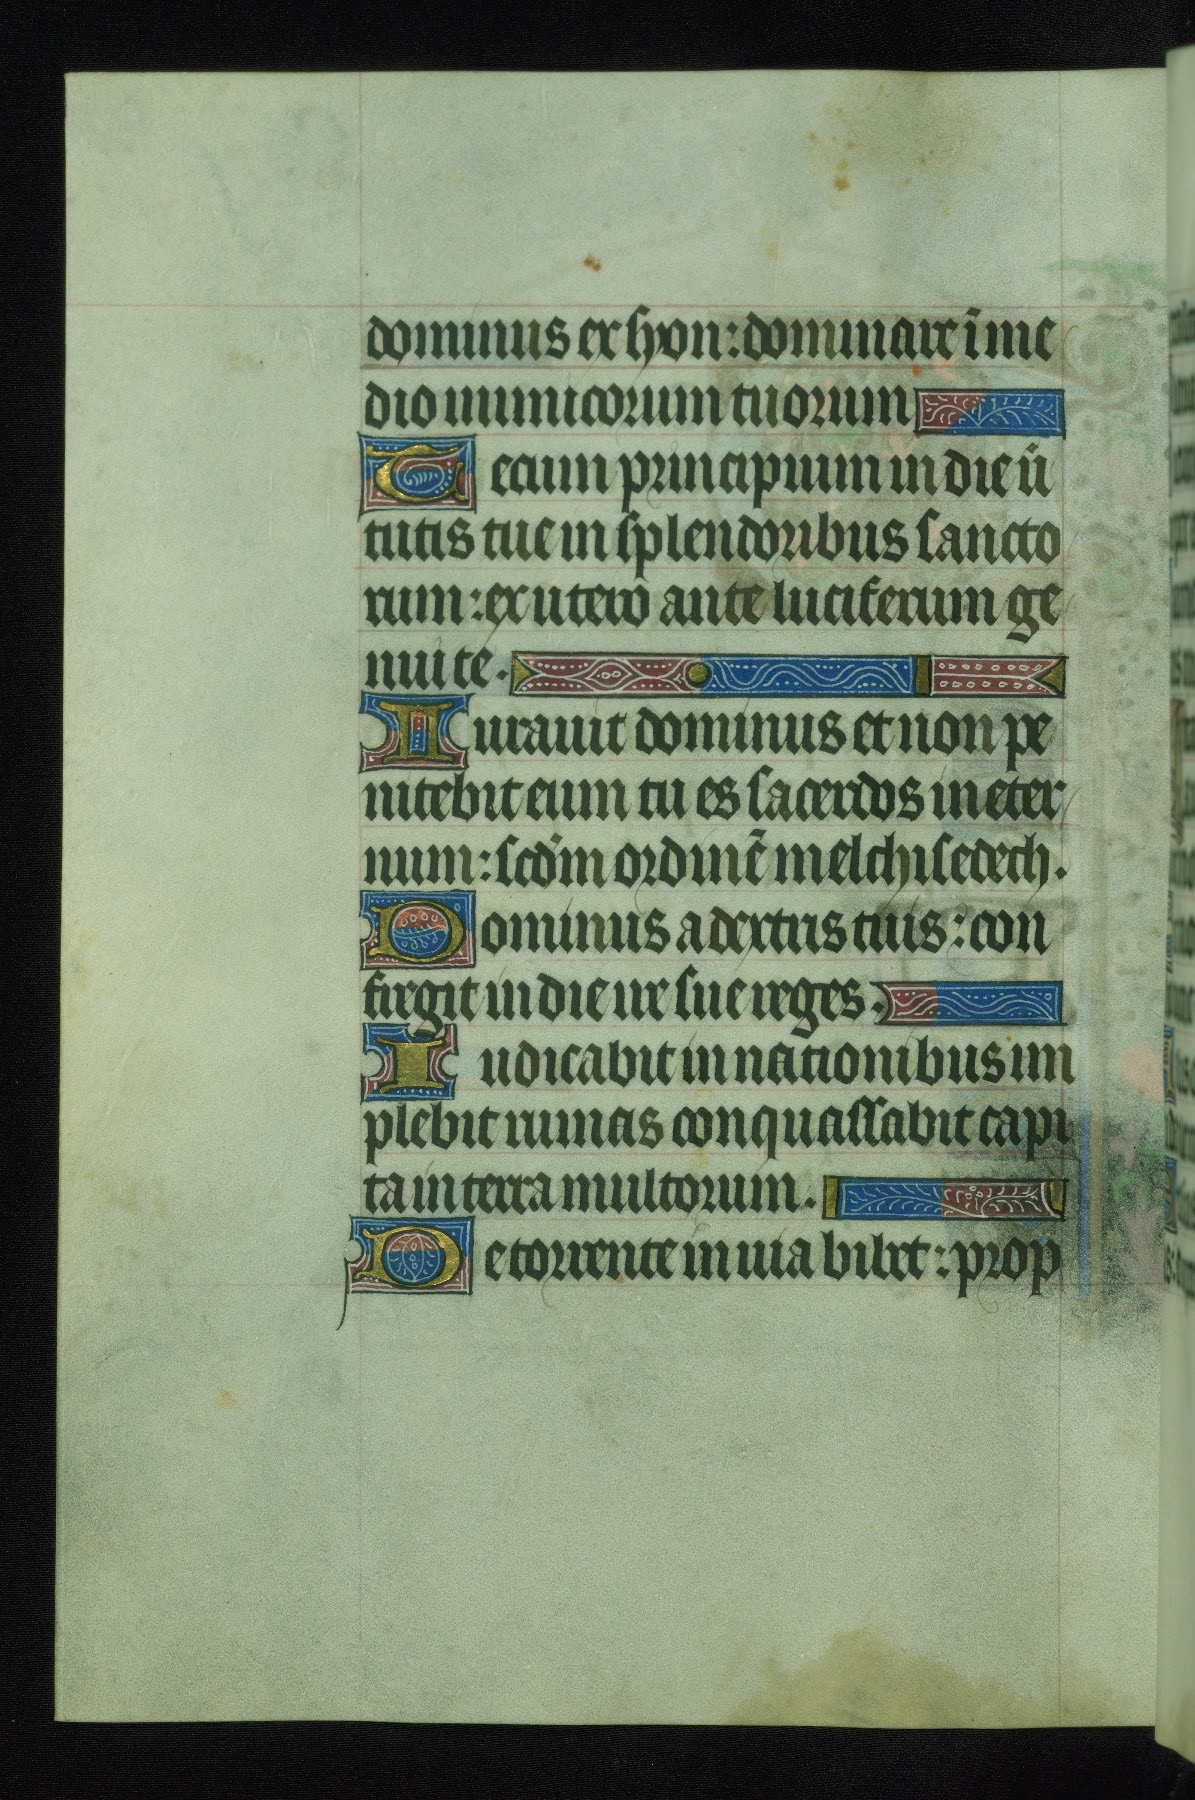 dominus ex syon: dominare ī me
dio inimicorum tuorum
Tecum principium in die ũ
tutis tue in splendoribus sancto
rum: ex utero ante luciferum ge
nui te.
Iurauit dominus et non pe
nitebit eum tu es sacerdos in eter
num: scďm ordinē melchisedech.
Dominus a dextris tuis: con
fregit in die ire sue reges.
Iudicabit in nationibus im
plebit ruinas conquassabit capi
ta in terra multorum.
De torrente in uia bibet: prop